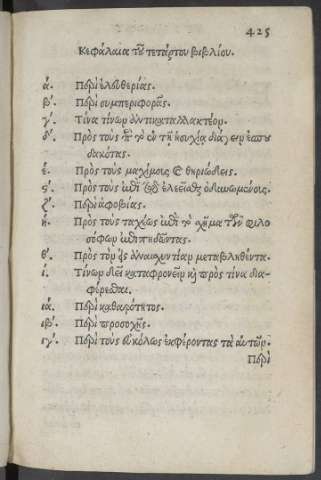 425
Κεφάλαια τοῦ τετάρτου βιβλίου.
α. Περὶ ἐλευθερίας.
β. Περὶ συμπεριφορᾶς.
γ. Τίνα τίνων ἀντικαταλλακτέον.
δ. Πρὸς τοὺς περὶ τὸ ἐν τῇ ἡσυχίᾳ διάγειν ἐσπου
δακότας.
ε. Πρὸς τοὺς μαχίμους καὶ θηριώδεις.
ς. Πρὸς τοὺς ἐπὶ τῷ ἐλεεῖσθαι ὀδυνωμένους.
ζ. Περὶ ἀφοβίας.
η. Πρὸς τοὺς ταχέως ἐπὶ τὸ χῆμα τῶν φιλο
σόφων ἐπιπηδῶντας.
θ. Πρὸς τὸν εἰς ἀναισχυντίαν μεταβληθέντα.
ι. Τίνων δεῖ καταφρονεῖν καὶ πρὸς τίνα δια-
φέρεσθαι.
ια. Περὶ καθαρότητος.
ιβ. Περὶ προσοχῆς.
ιγ. Πρὸς τοὺς εὐκόλως ἐκφέροντας τὰ αὑτῶν.
Περὶ